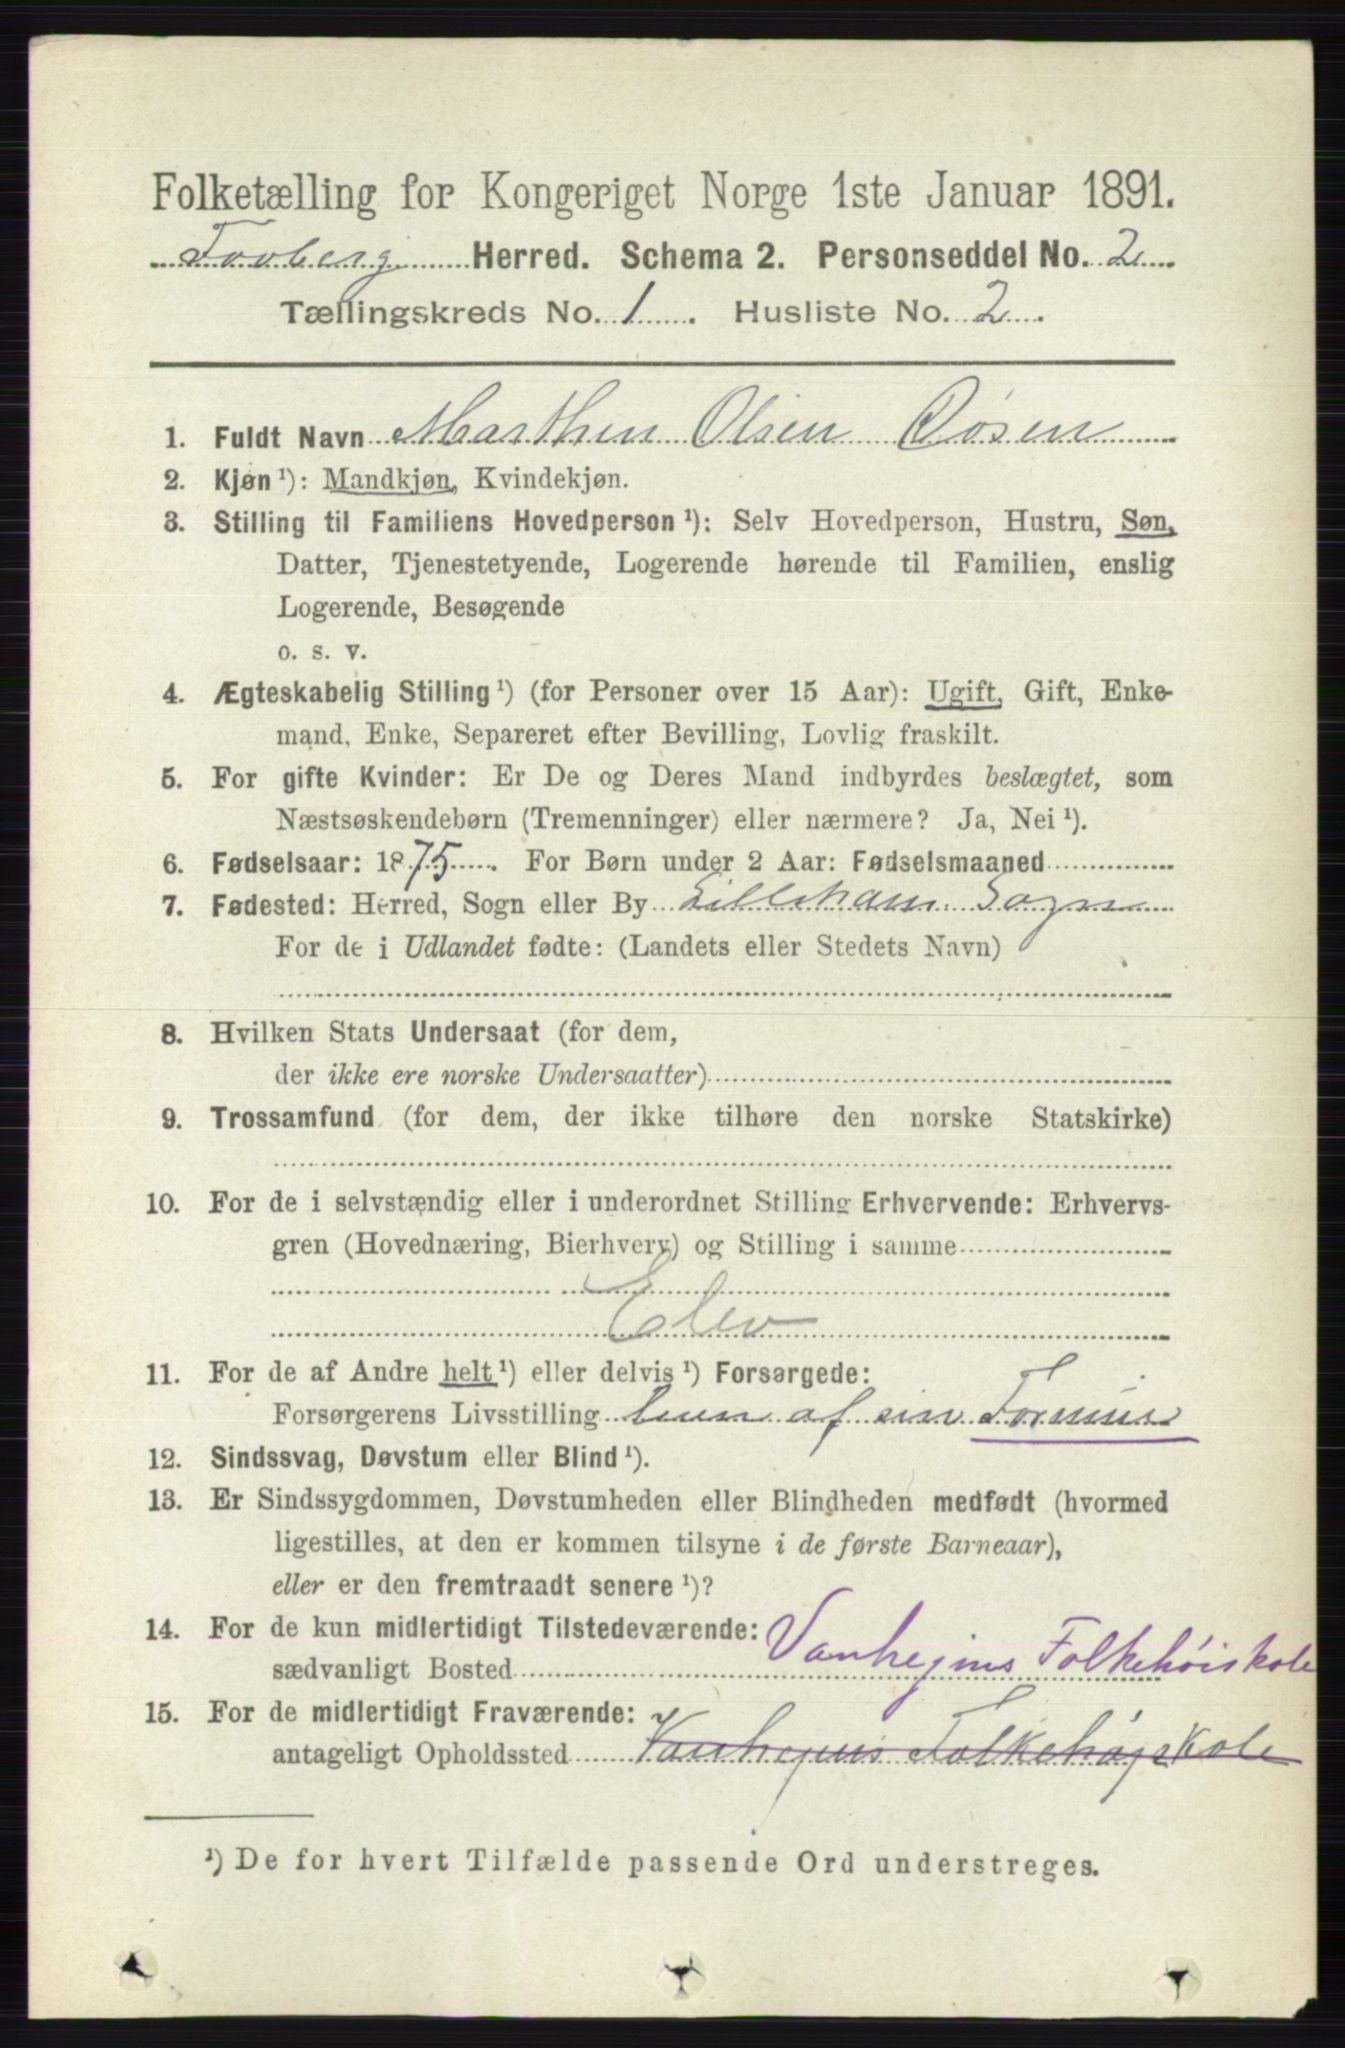 Folketælling for Kongeriget Norge 1ste Januar 1891.
Herred. Schema 2. Personseddel No. 2
Tællingskreds No. 1. Husliste No. 2.
1. Fuldt Navn Marthin Olsen Røsen
2. Kjøn ¹): Mandkjøn, Kvindekjøn.
3. Stilling til Familiens Hovedperson ¹): Selv Hovedperson, Hustru, Søn,
Datter, Tjenestetyende, Logerende hørende til Familien, enslig
Logerende, Besøgende
o. s. v.
4. Ægteskabelig Stilling ¹) (for Personer over 15 Aar): Ugift, Gift, Enke-
mand, Enke, Separeret efter Bevilling, Lovlig fraskilt.
5. For gifte Kvinder: Er De og Deres Mand indbyrdes beslægtet, som
Næstsøskendebørn (Tremenninger) eller nærmere? Ja, Nei ¹).
6. Fødselsaar: 1875. For Børn under 2 Aar: Fødselsmaaned
7. Fødested: Herred, Sogn eller By Lilleham. Sogn
For de i Udlandet fødte: (Landets eller Stedets Navn)
8. Hvilken Stats Undersaat (for dem,
der ikke ere norske Undersaatter)
9. Trossamfund (for dem, der ikke tilhøre den norske Statskirke)
10. For de i selvstændig eller i underordnet Stilling Erhvervende: Erhvervs-
gren (Hovednæring, Bierhverv) og Stilling i samme
Elev
11. For de af Andre helt ¹) eller delvis ¹) Forsørgede:
Forsørgerens Livsstilling lever af sin Formue
12. Sindssvag, Døvstum eller Blind ¹).
13. Er Sindssygdommen, Døvstumheden eller Blindheden medfødt (hvormed
ligestilles, at den er kommen tilsyne i de første Barneaar),
eller er den fremtraadt senere ¹)?
14. For de kun midlertidigt Tilstedeværende: Vonhejms Folkehöiskole
sædvanligt Bosted
15. For de midlertidigt Fraværende:
antageligt Opholdssted Vonhejms Folkehøjskole
¹) De for hvert Tilfælde passende Ord understreges.